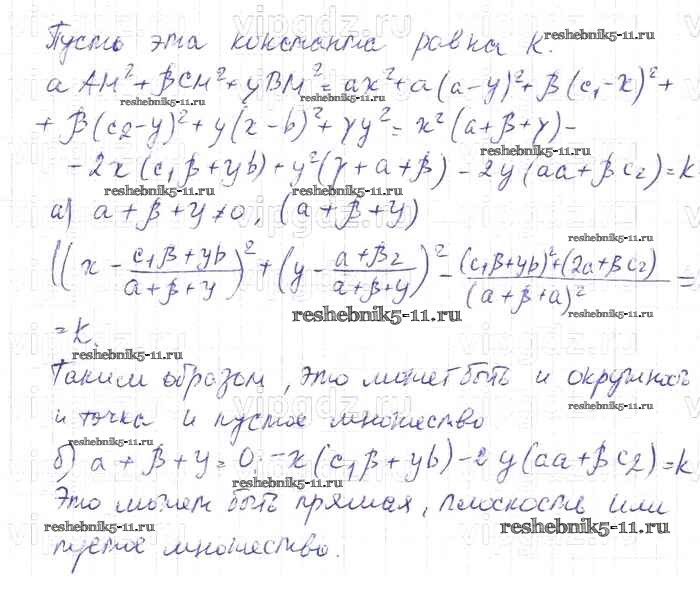 Пусть эта константа равна K.
a AM² + βCM² + yBM² = ax² + a(a-y)² + β(c₁-x)² +
+ β(c₂-y)² + y(x-b)² + γy² = x²(a+β+γ) -
- 2x(c₁β+yb) + y²(γ+a+β) - 2y(aa+βc₂) = k
а) a+β+y≠0, (a+β+y)
((x - (c₁β+yb)/(a+β+y))² + (y - (a+β₂)/(a+β+y))² - ((c₁β+yb)²+(2a+βc₂))/(a+β+a)² =
= k.
Таким образом, это может быть и окружность
и точка и пустое множество
б) a+β+y=0. -x(c₁β+yb) - 2y(aa+βc₂) = k
Это может быть прямая, плоскость или
пустое множество.
reshebnik5-11.ru
vipgdz.ru